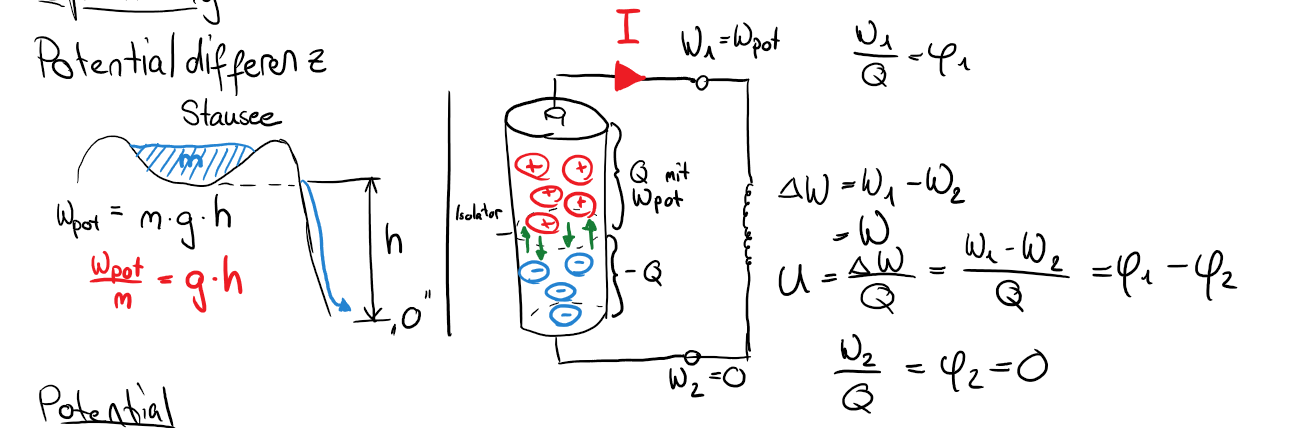 Potentialdifferenz
Stausee
m
Wpot = m·g·h
Wpot/m = g·h
h
„0"
I
W1 = Wpot
Q mit
Wpot
Isolator
+ + + + +
- - - -
-Q
W2 = 0
W1/Q = φ1
ΔW = W1 - W2
= W
U = ΔW/Q = (W1 - W2)/Q = φ1 - φ2
W2/Q = φ2 = 0
Potential